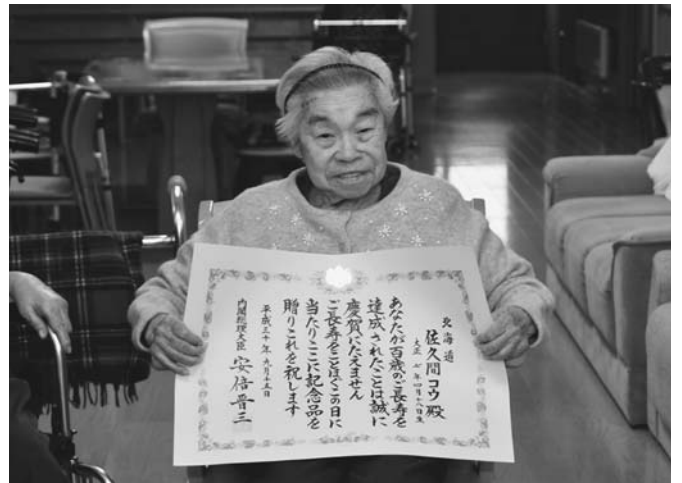 北海道
佐久間コウ殿
大正七年四月十八日生
あなたが百歳のご長寿を
達成されたことは誠に
慶賀にたえません
ご長寿をことほぐこの日に
当たりここに記念品を
贈りこれを祝します
平成三十年九月十五日
内閣総理大臣 安倍晋三